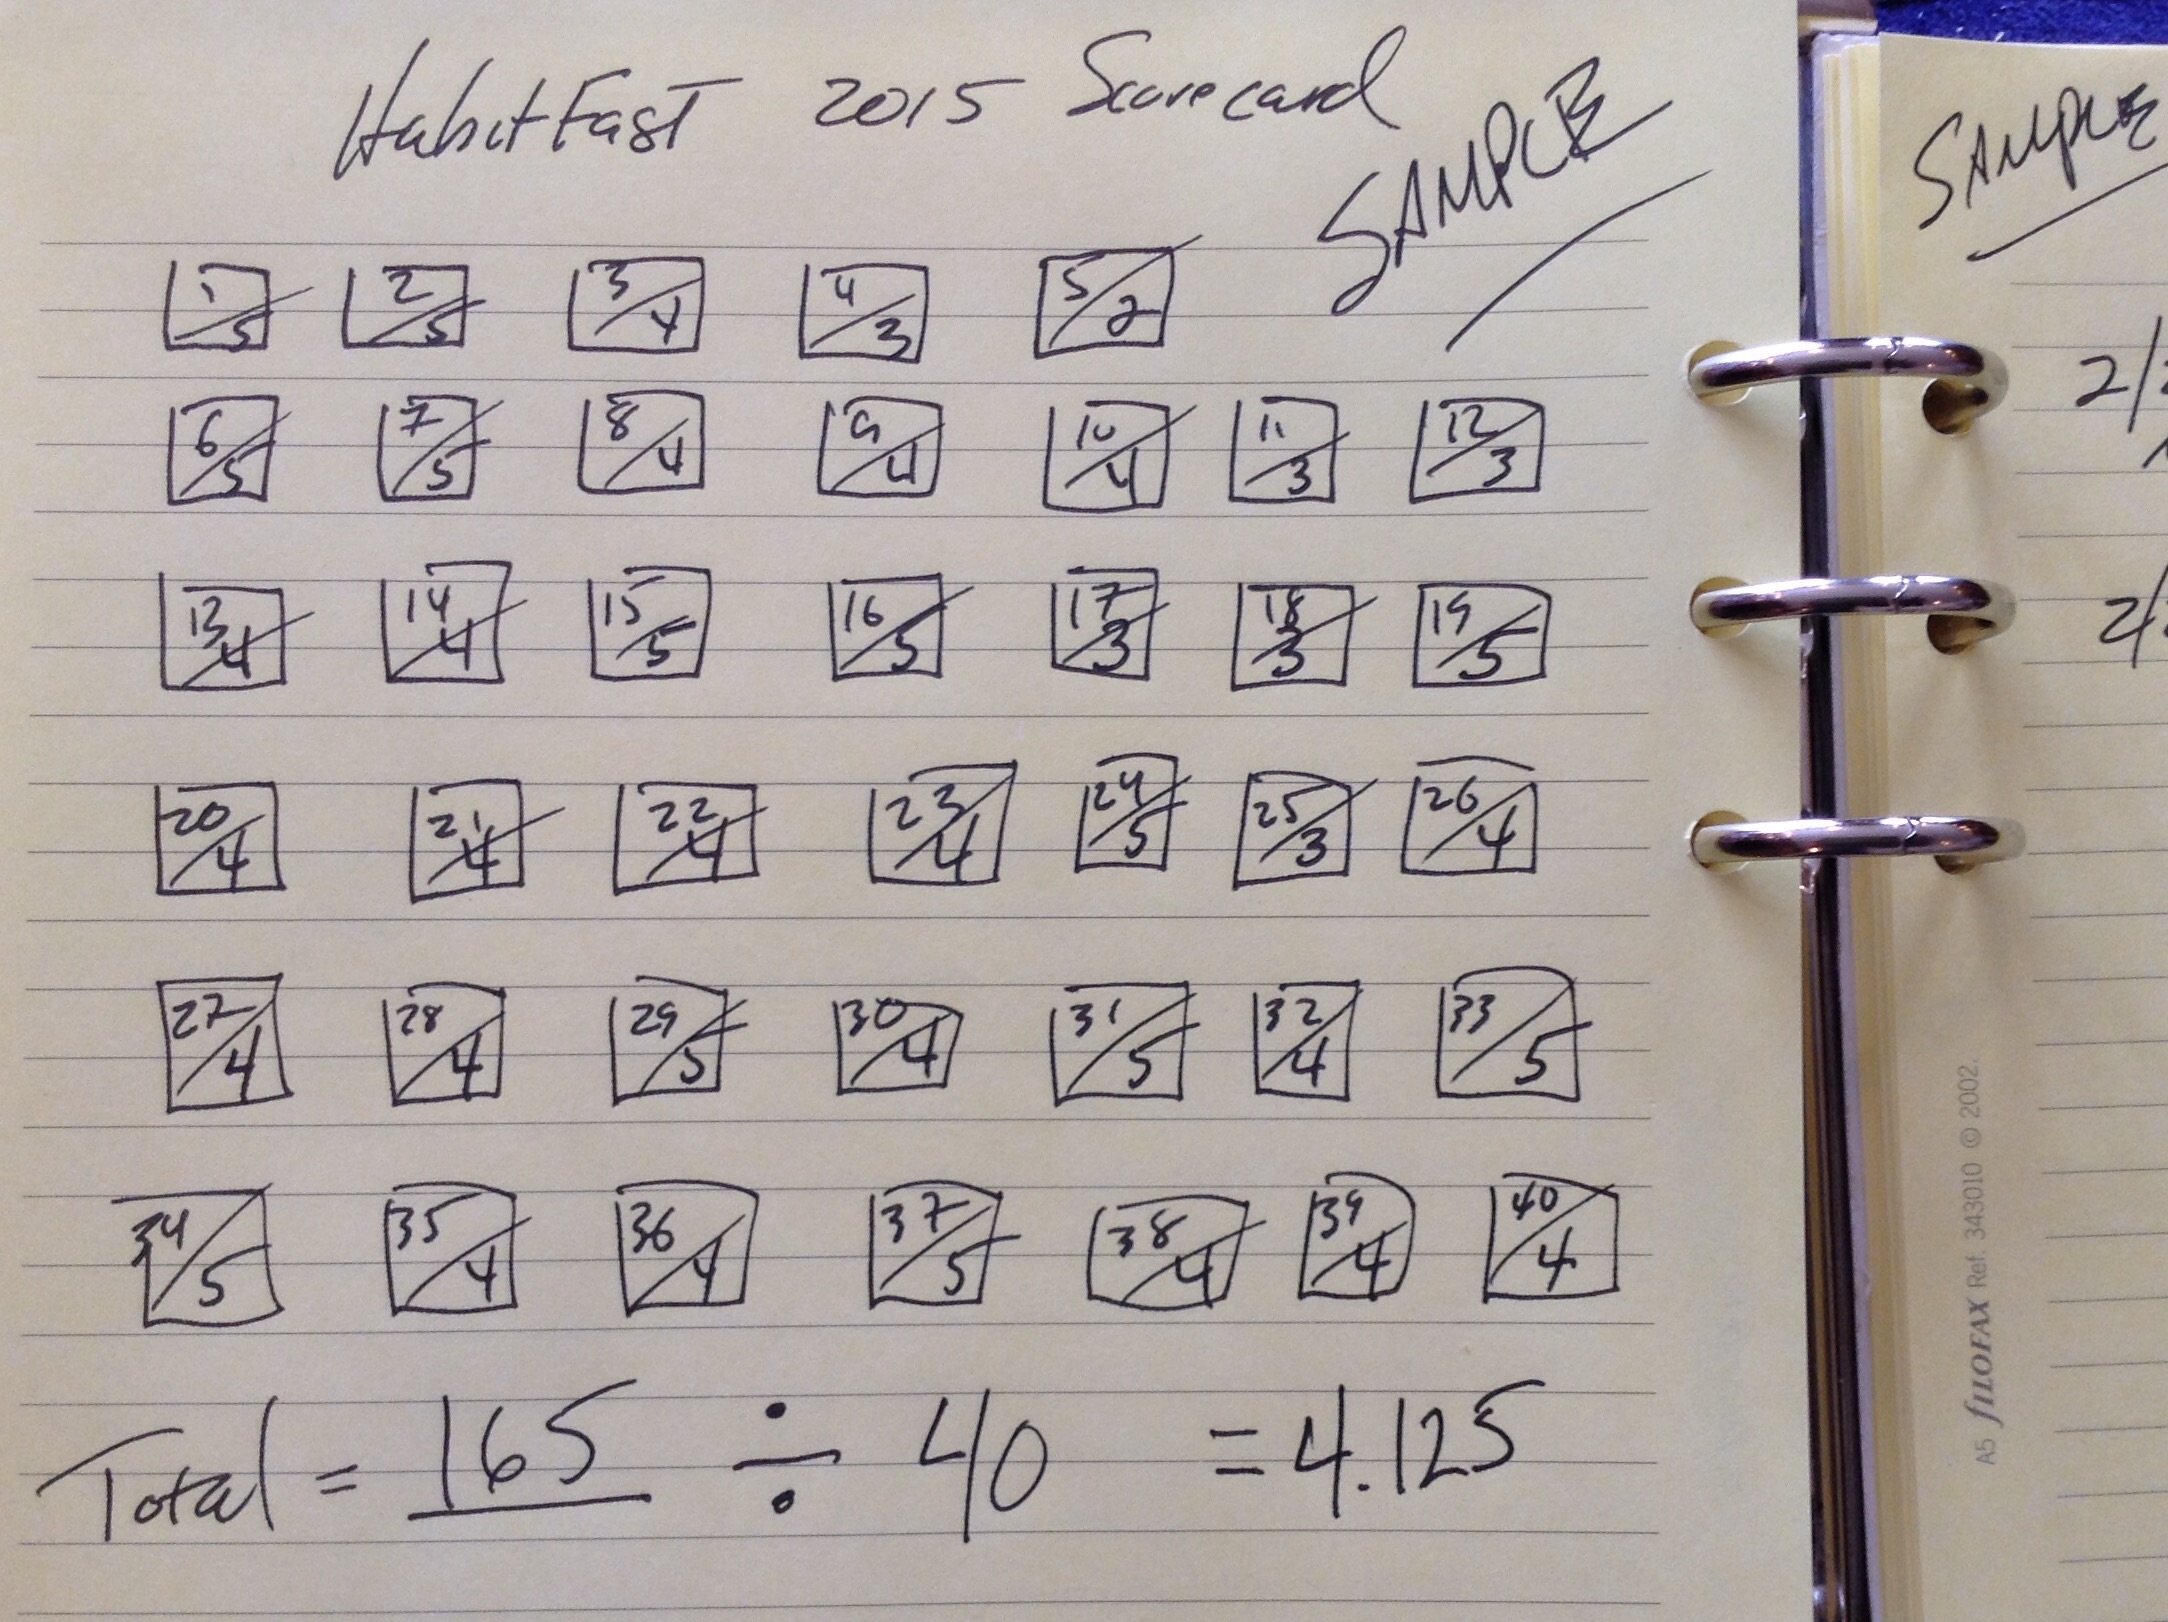 HabitFast 2015 Scorecard
SAMPLE
1/5 2/5 3/4 4/3 5/2
6/5 7/5 8/4 9/4 10/4 11/3 12/3
13/4 14/4 15/5 16/5 17/3 18/3 19/5
20/4 21/4 22/4 23/4 24/5 25/3 26/4
27/4 28/4 29/5 30/4 31/5 32/4 33/5
34/5 35/4 36/4 37/5 38/4 39/4 40/4
Total = 165 ÷ 40 = 4.125
SAMPLE
2/
2/
A5 FILOFAX Ref. 343010 © 2002.